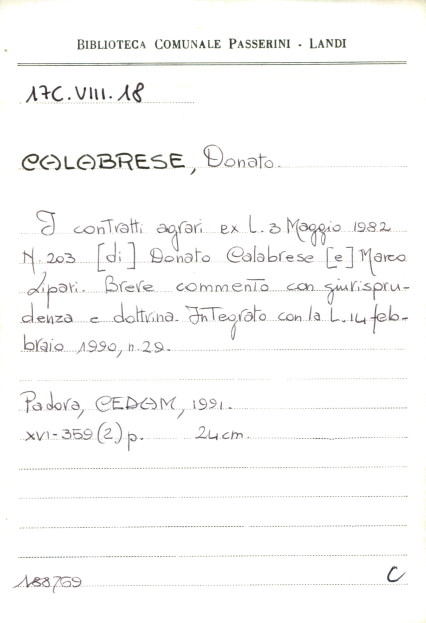 BIBLIOTECA COMUNALE PASSERINI - LANDI
17C.VIII.18
CALABRESE, Donato.
I contratti agrari ex L. 3 Maggio 1982
N. 203 [di] Donato Calabrese [e] Marco
Lipari. Breve commento con giurispru-
denza e dottrina. Integrato con la L. 14 feb-
braio 1990, n. 29.
Padova, CEDAM, 1991.
XVI-359 (2) p. 24 cm.
188769
C